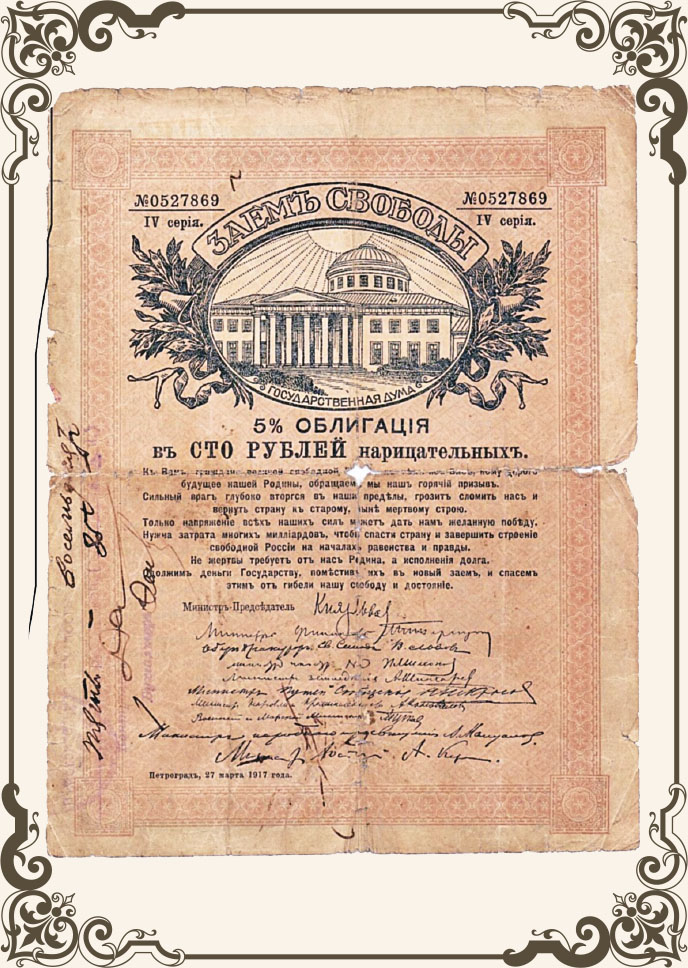 №0527869 №0527869
IV серія. IV серія.
ЗАЕМЪ СВОБОДЫ
ГОСУДАРСТВЕННАЯ ДУМА
5% ОБЛИГАЦІЯ
въ СТО РУБЛЕЙ нарицательныхъ.
Къ Вамъ, свободной, кому дорого
будущее нашей Родины, обращаем мы нашъ горячій призывъ.
Сильный врагъ глубоко вторгся въ наши предѣлы, грозитъ сломить насъ и
вернуть страну къ старому, нынѣ мертвому строю.
Только напряженіе всѣхъ нашихъ силъ можетъ дать намъ желанную побѣду.
Нужна затрата многихъ милліардовъ, чтобы спасти страну и завершить строеніе
свободной Россіи на началахъ равенства и правды.
Не жертвы требуетъ отъ насъ Родина, а исполненія долга.
Одолжимъ деньги Государству, помѣстивъ ихъ въ новый заемъ, и спасемъ
этимъ отъ гибели нашу свободу и достояніе.
Министръ-Предсѣдатель Князь Львов
Министръ Финансовъ
Оберъ Прокуроръ Св. Синода В. Львовъ
П. Милюков
Министръ земледѣлія А. Шингарев
Министръ Путей Сообщенія Н. Некрасов
Министръ Торговли и Промышленности А. Коновалов
Военный и Морской Министръ Гучков
Министръ народнаго просвѣщенія А. Мануилов
Министр Юстиціи А. Керенский
Петроградъ, 27 марта 1917 года.